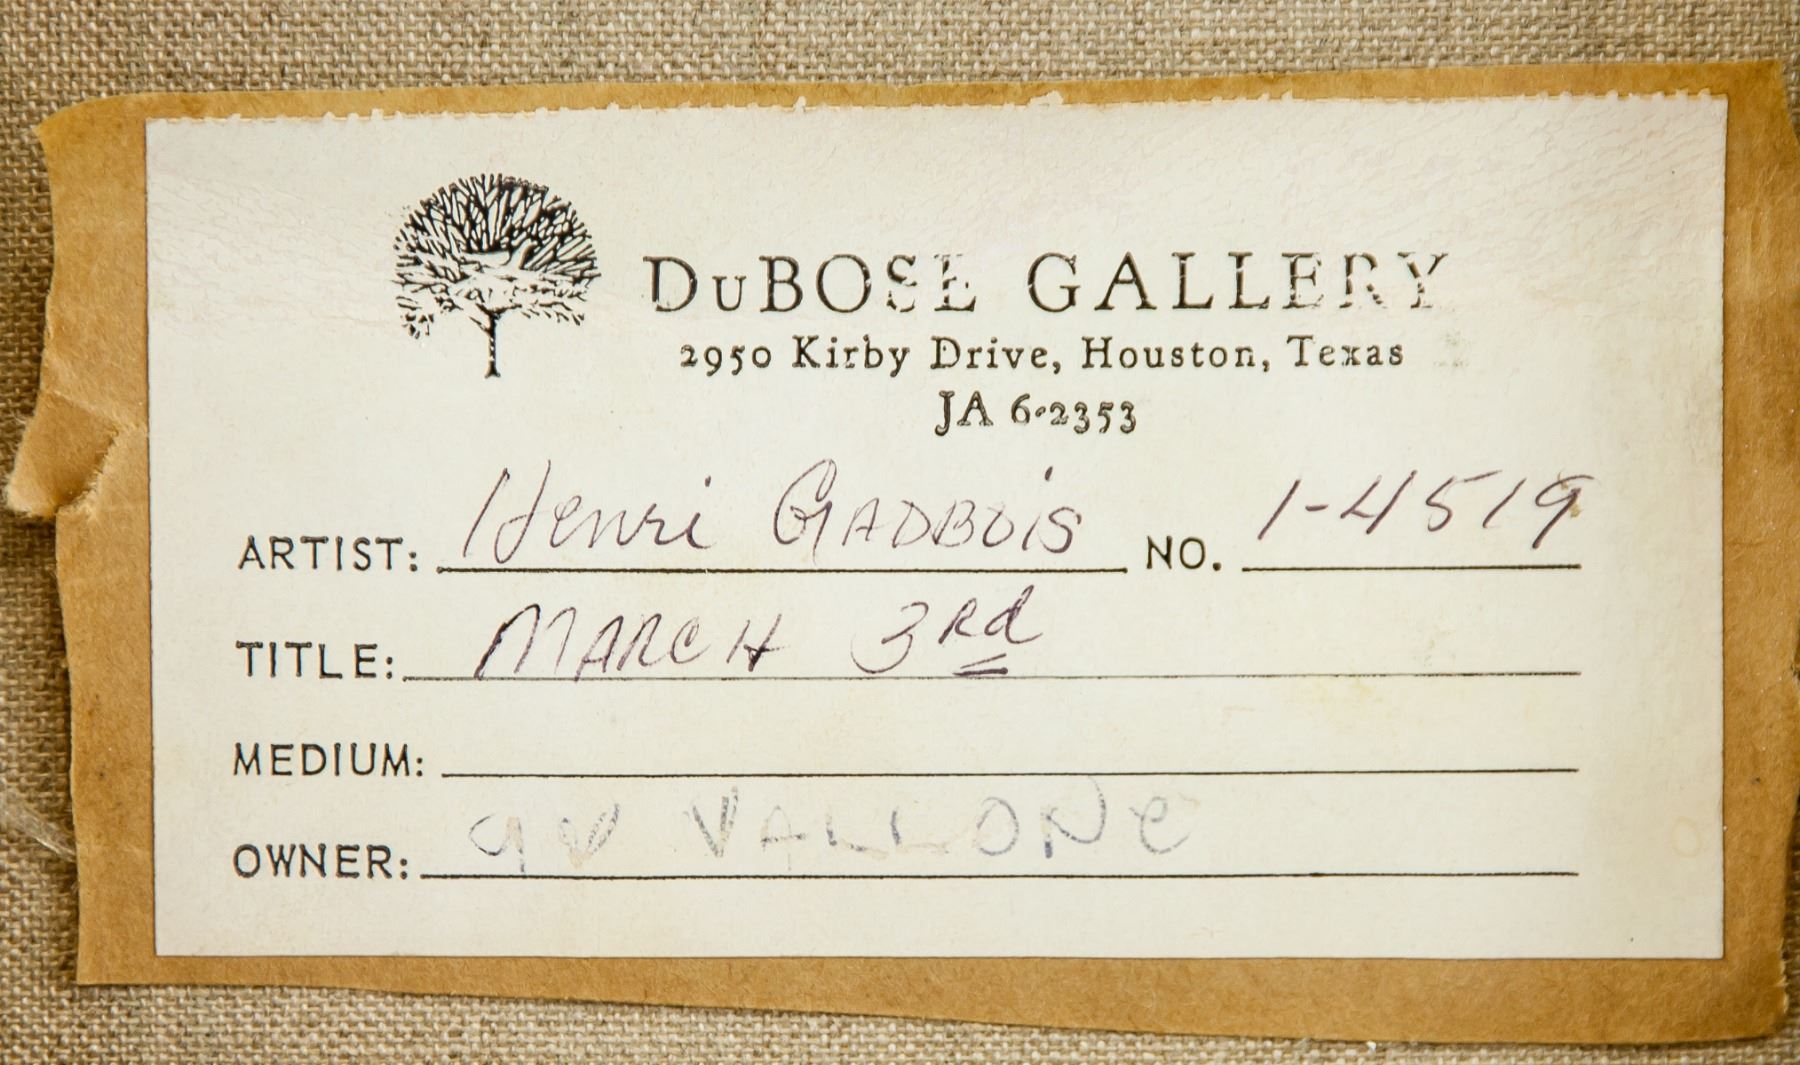 DuBOSE GALLERY
2950 Kirby Drive, Houston, Texas
JA 6-2353
ARTIST: Henri GADBOIS NO. 1-4519
TITLE: MARCH 3rd
MEDIUM:
OWNER: VALLONE